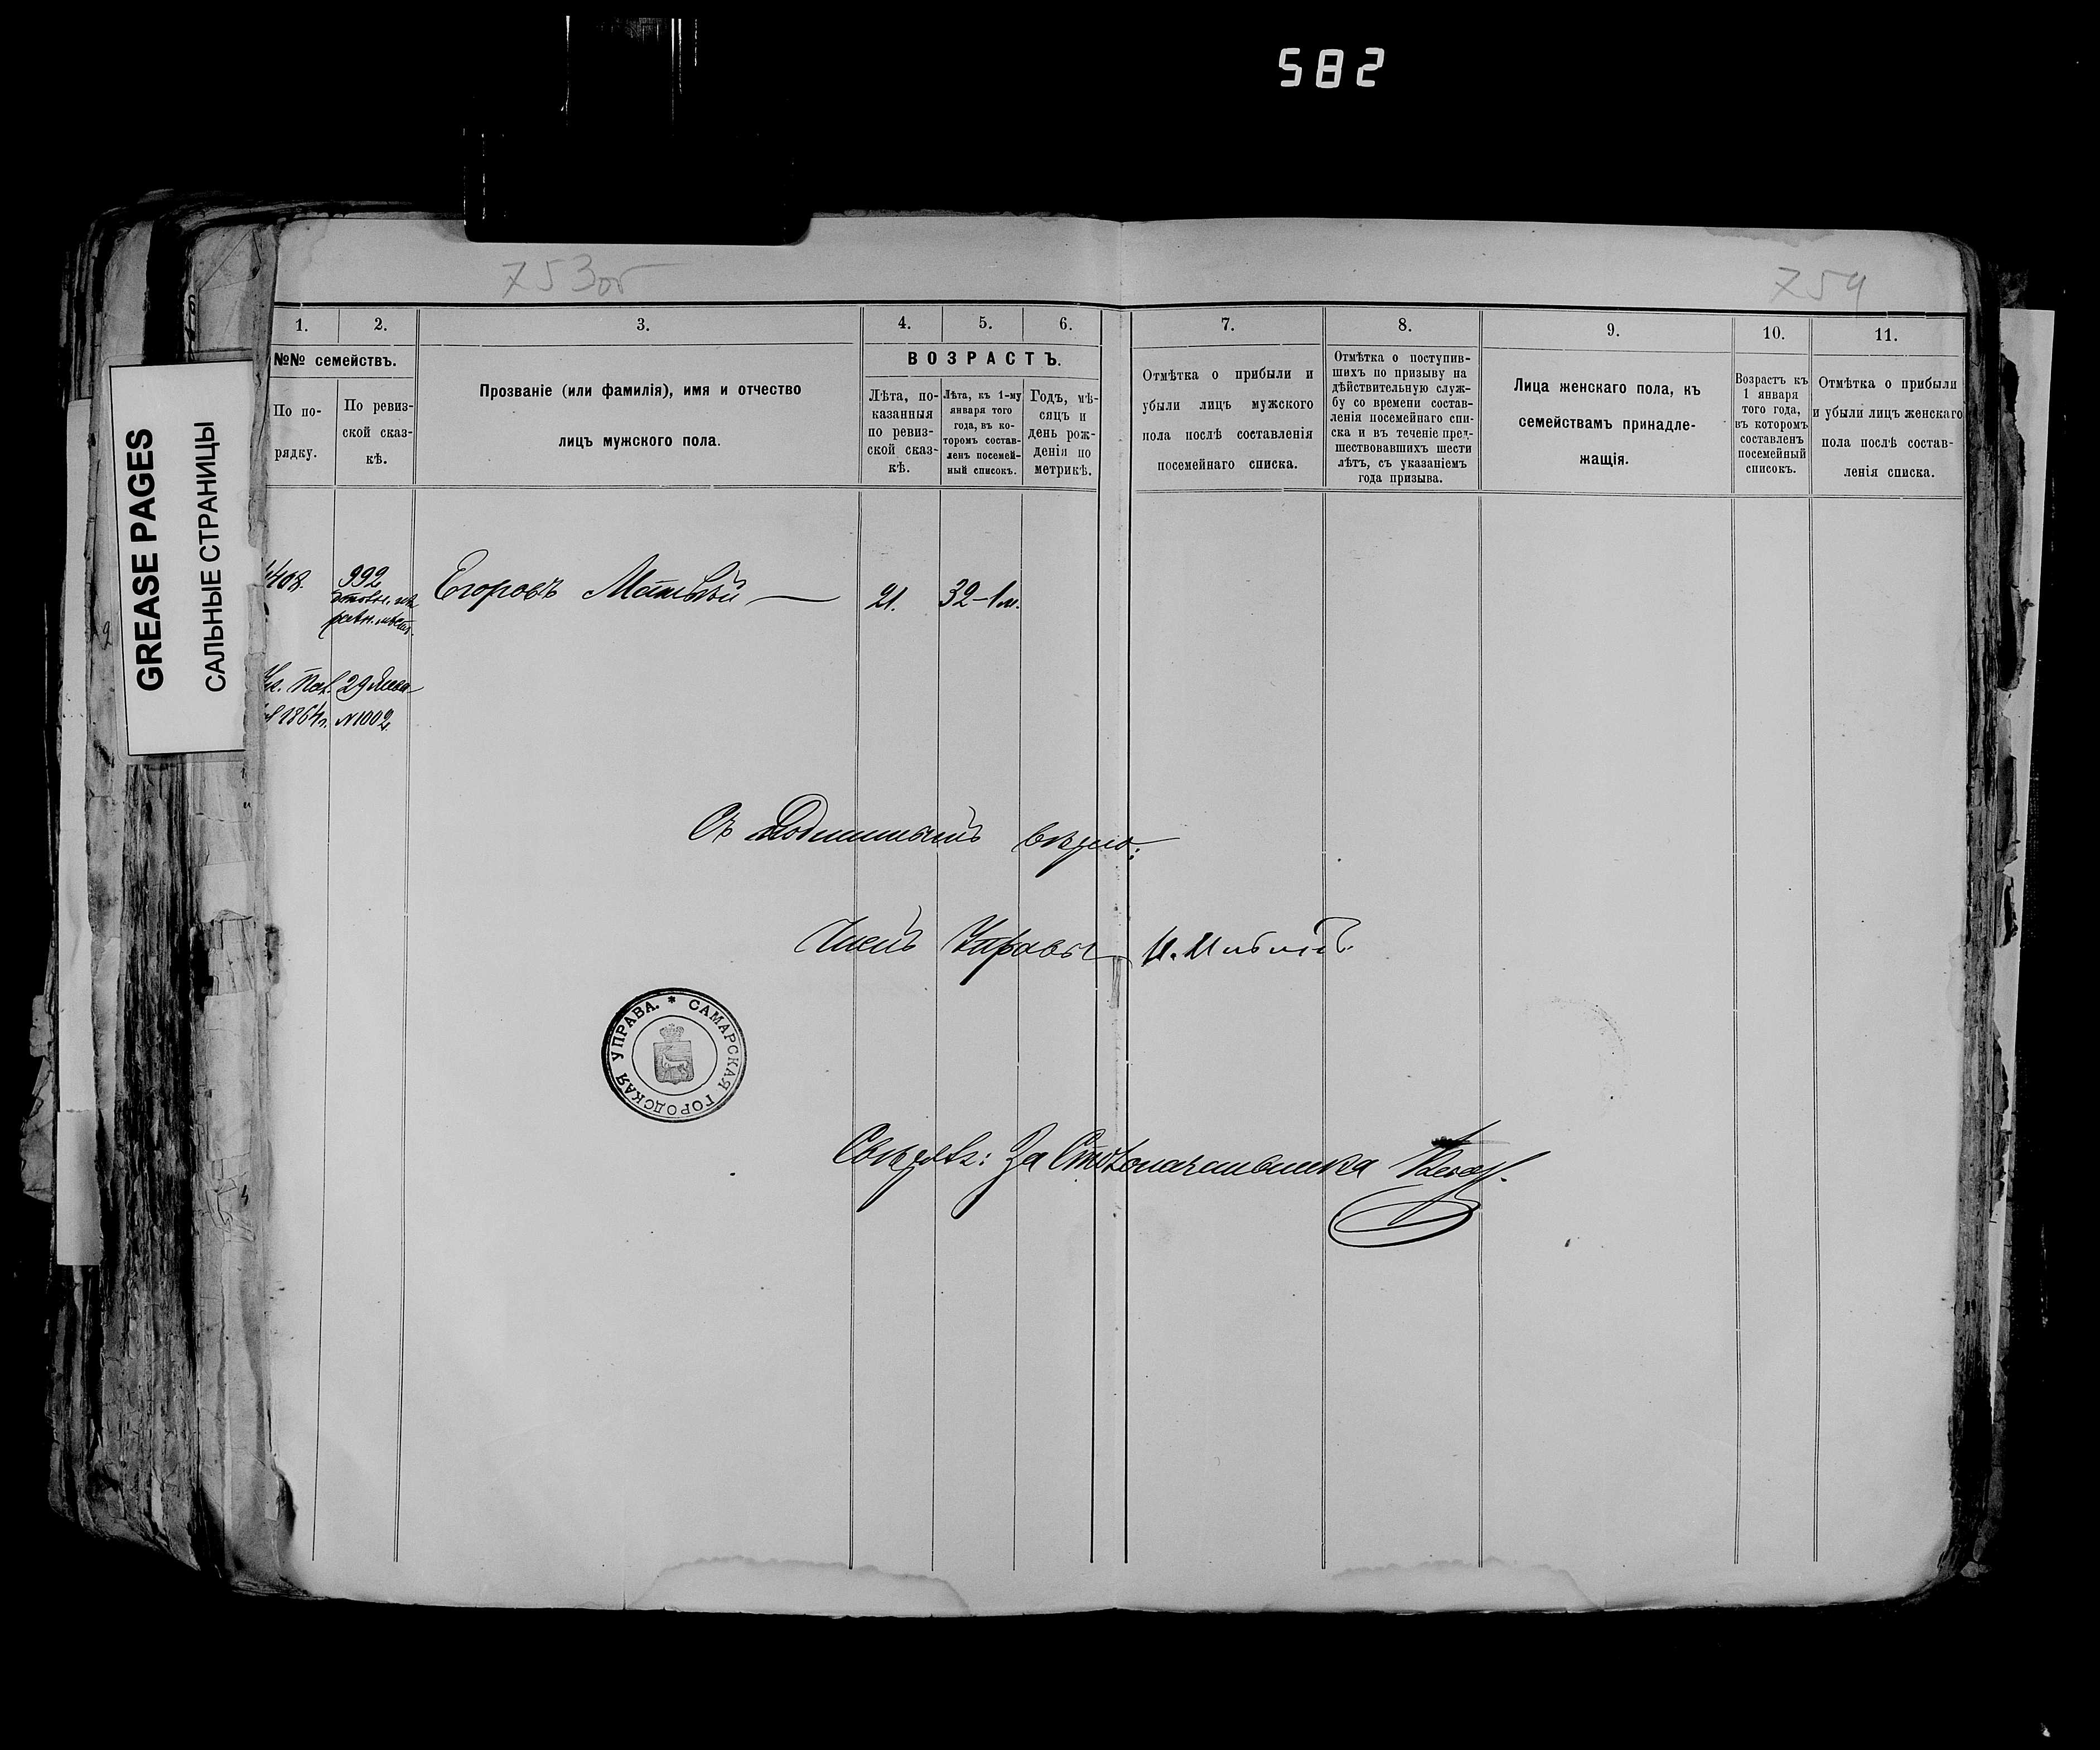 582
753об
754
GREASE PAGES
САЛЬНЫЕ СТРАНИЦЫ
1.
2.
3.
4.
5.
6.
7.
8.
9.
10.
11.
№№ семействъ.
По по-
рядку.
По ревиз-
ской сказ-
кѣ.
Прозваніе (или фамилія), имя и отчество
лицъ мужского пола.
ВОЗРАСТЪ.
Лѣта, по-
казанныя
по ревиз-
ской сказ-
кѣ.
Лѣта, къ 1-му
января того
года, въ ко-
торомъ состав-
ленъ посемей-
ный списокъ.
Годъ, мѣ-
сяцъ и
день рож-
денія по
метрикѣ.
Отмѣтка о прибыли и
убыли лицъ мужского
пола послѣ составленія
посемейнаго списка.
Отмѣтка о поступив-
шихъ по призыву на
дѣйствительную служ-
бу со времени состав-
ленія посемейнаго спи-
ска и въ теченіе пред-
шествовавшихъ шести
лѣтъ, съ указаніемъ
года призыва.
Лица женскаго пола, къ
семействамъ принадле-
жащія.
Возрастъ къ
1 января
того года,
въ которомъ
составленъ
посемейный
списокъ.
Отмѣтка о прибыли
и убыли лицъ женскаго
пола послѣ состав-
ленія списка.
408.
992
Егоровъ Матвѣй —
21.
32-1 м.
Ук. Пал. 29 Янва
1864 г. №1002.
Съ Подлиннымъ вѣрно:
Членъ Управы
САМАРСКАЯ ГОРОДСКАЯ УПРАВА. *
Свѣрялъ: За Столоначальника